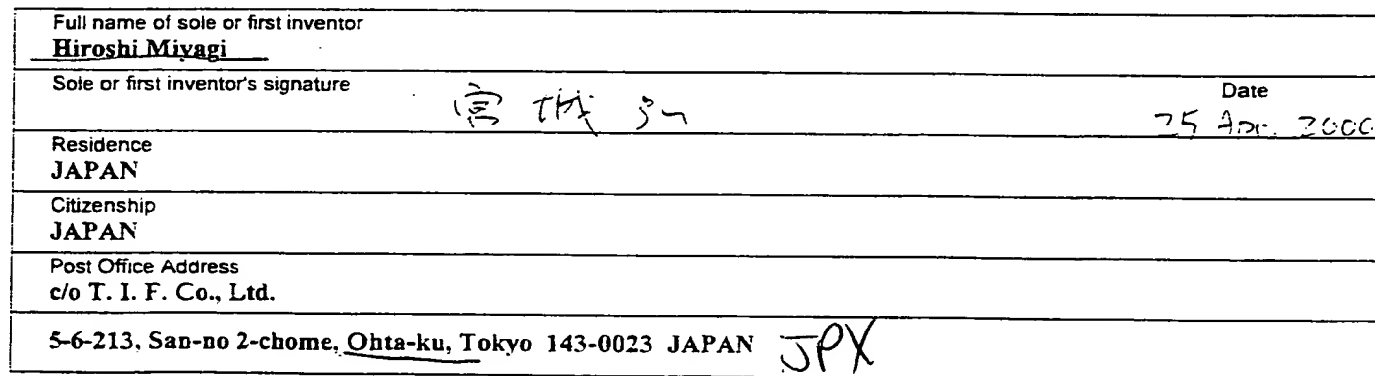 Full name of sole or first inventor
Hiroshi Miyagi
Sole or first inventor's signature
宮城弘
Date
25 Apr. 2000
Residence
JAPAN
Citizenship
JAPAN
Post Office Address
c/o T. I. F. Co., Ltd.
5-6-213, San-no 2-chome, Ohta-ku, Tokyo 143-0023 JAPAN JPX